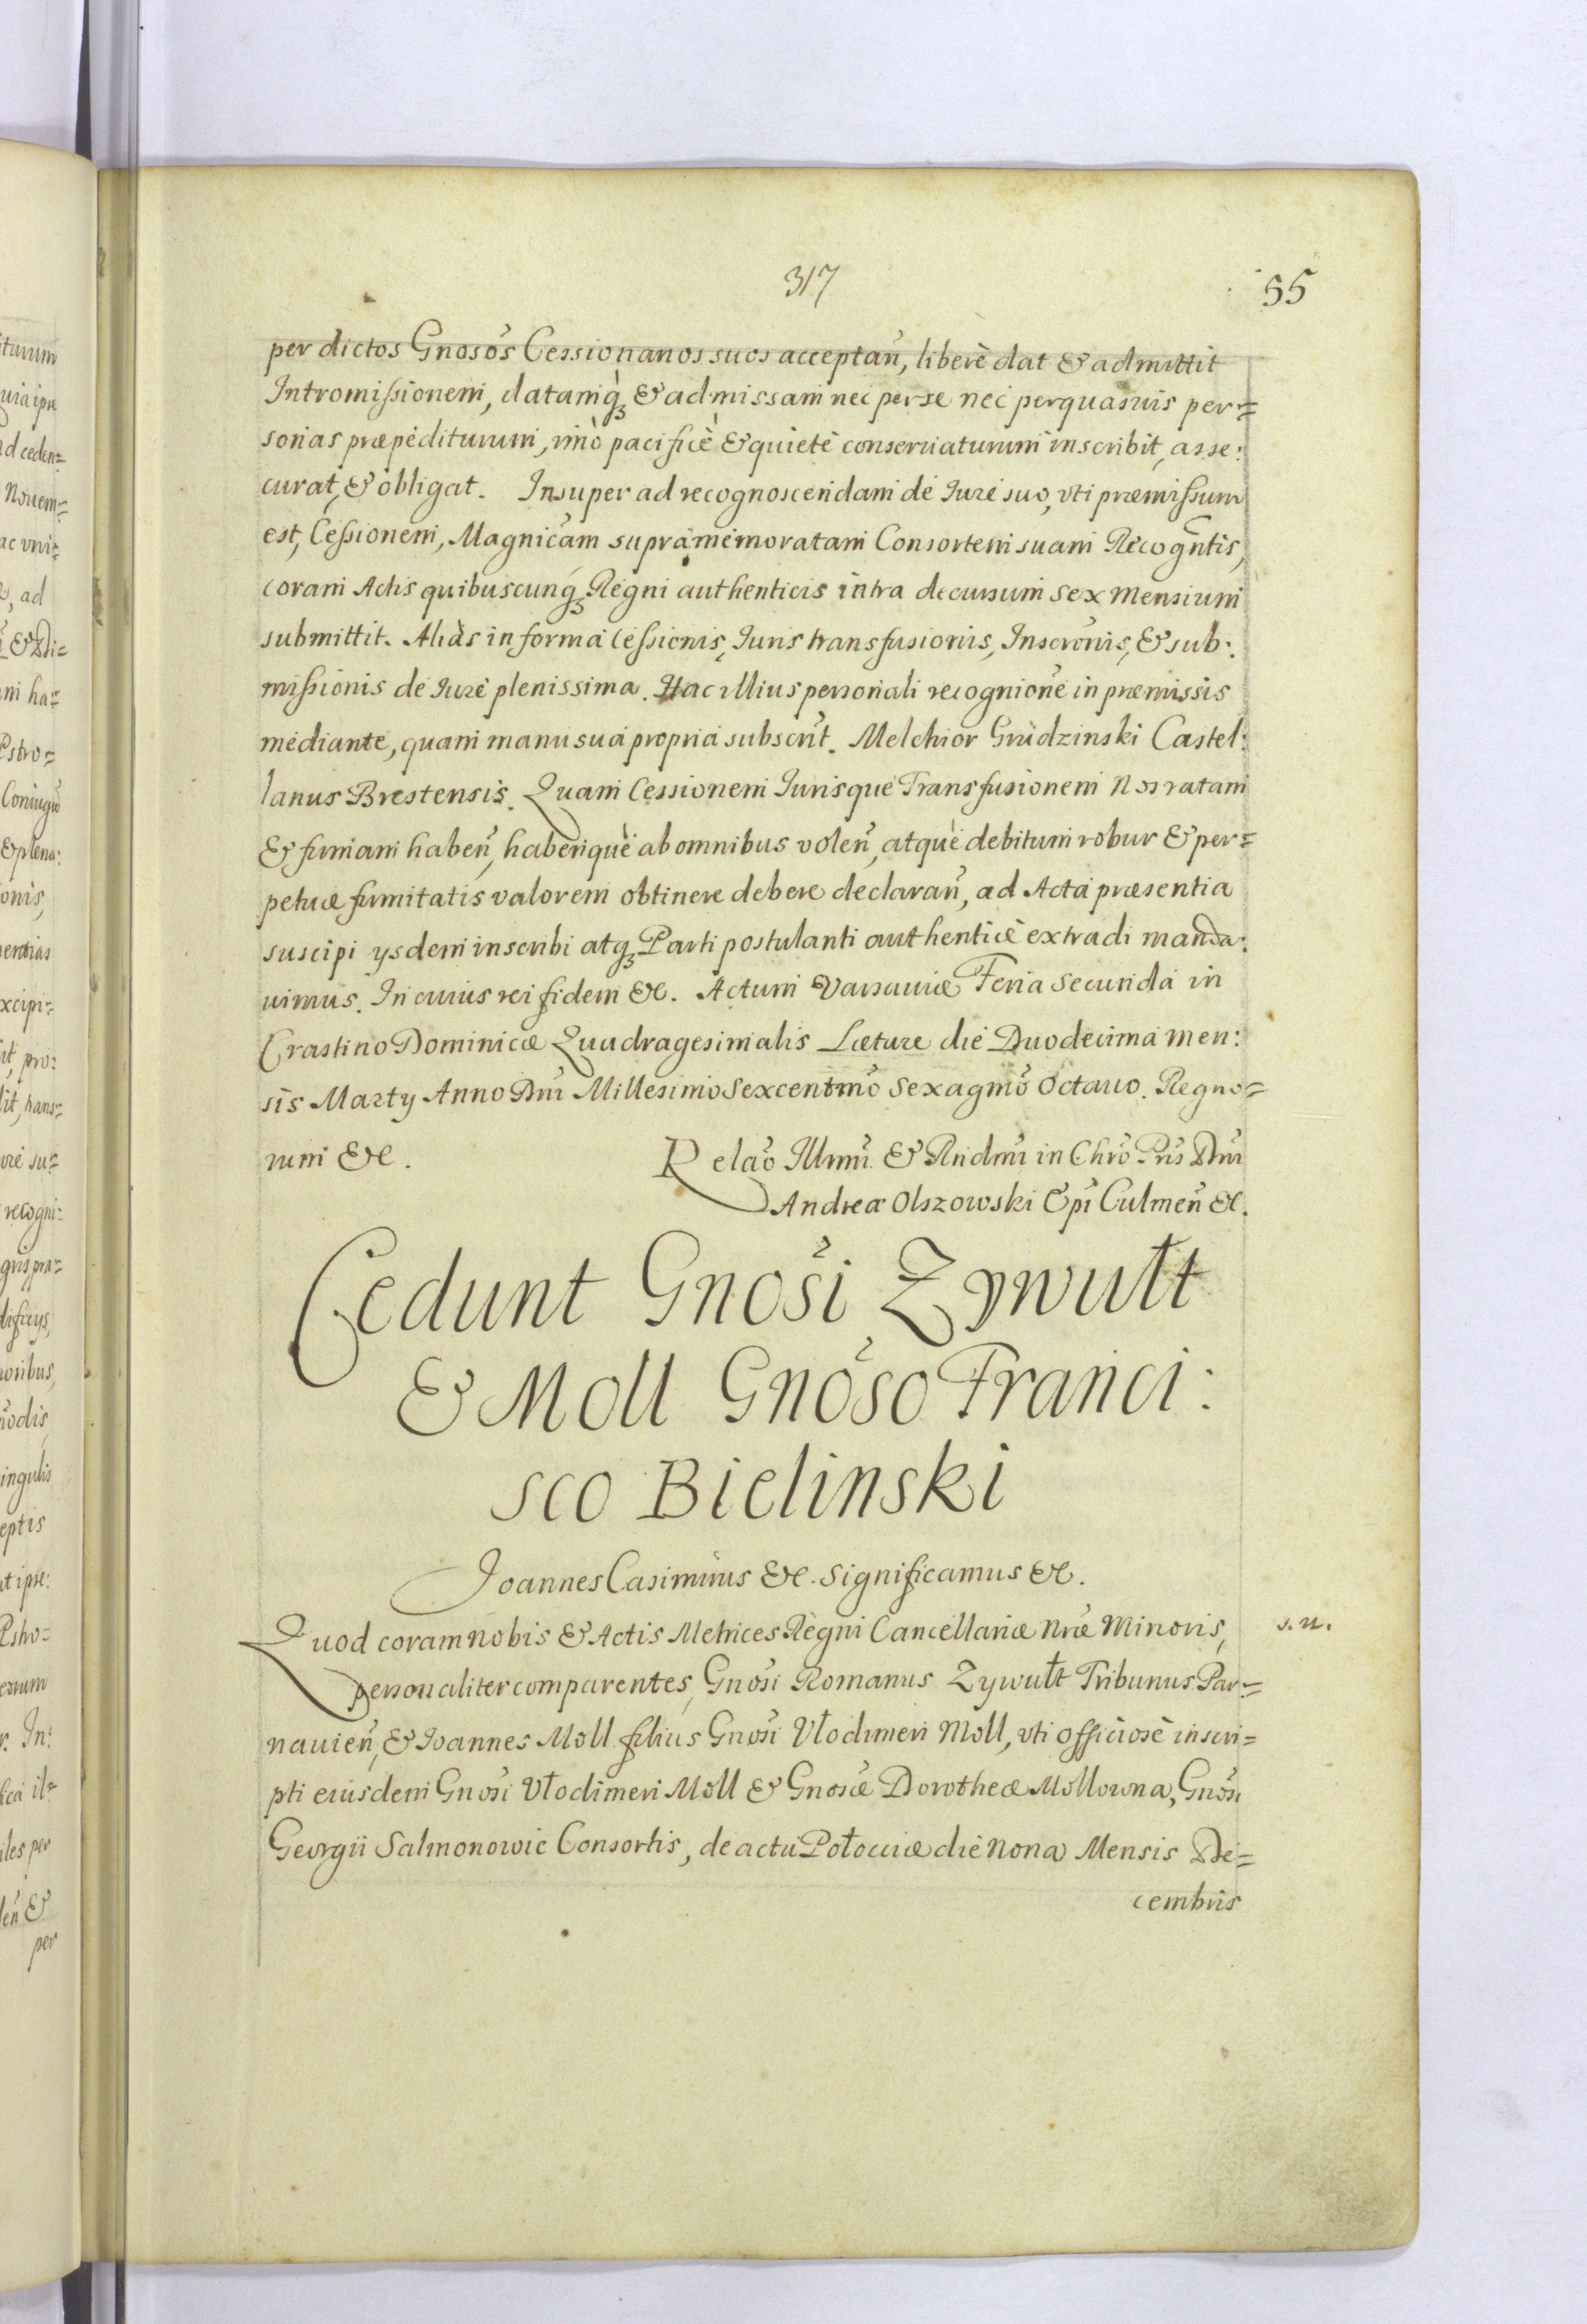 317
55
per dictos Gnosos Cessionarios suos acceptan, liberè dat & admittit
Intromissionem, datamq; & admissam nec per se nec per quasuis per=
sonas præpediturum, imò pacificè & quietè conseruaturum inscribit, asse:
curat, & obligat. Insuper ad recognoscendam de Iure suo, vti præmissum
est, Cessionem, Magnicam supramemoratam Consortem suam Recogntis,
coram Actis quibuscunq; Regni authenticis intra decursum sex Mensium
submittit. Aliàs in forma Cessionis, Iuris transfusionis, Inscronis, & sub:
missionis de Iure plenissima. Hac illius personali recognione in præmissis
mediante, quam manu sua propria subscrit. Melchior Grudzinski Castel:
lanus Brestensis. Quam Cessionem Iurisque Transfusionem Nos ratam
& firmam haben, haberiquè ab omnibus volen, atquè debitum robur & per=
petuæ firmitatis valorem obtinere debere declaran, ad Acta præsentia
suscipi ysdem inscribi atq; Parti postulanti authenticè extradi manda:
uimus. In cuius rei fidem &c. Actum Varsauiæ Feria Secunda in
Crastino Dominicæ Quadragesimalis Læture die Duodecima men:
sis Marty Anno Dni Millesimo Sexcentmo Sexagmo Octauo. Regno=
rum &c.
Relao Illmi & Rndmi in Chro Pris Dni
Andreæ Olszowski Epi Culmen &c.
Cedunt Gnosi Zywułt
& Moll Gnoso Franci:
sco Bielinski
Joannes Casimirus &c. Significamus &c.
Quod coram nobis & Actis Metrices Regni Cancellariæ Nræ Minoris,
s. n.
personaliter comparentes, Gnosi Romanus Zywułt Tribunus Par=
nauien, & Ioannes Moll filius Gnosi Włodimeri Moll, vti officiosè inscri=
pti eiusdem Gnosi Włodimeri Moll & Gnosæ Dorotheæ Mollowna, Gnosi
Georgii Salmonowic Consortis, de actu Połocciæ die Nona Mensis De=
cembris